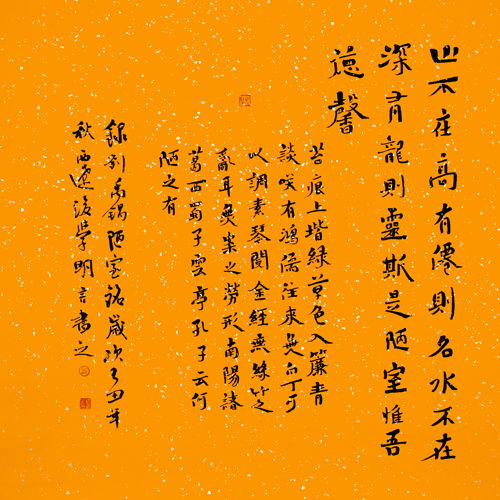 山不在高有僊則名水不在
深有龍則靈斯是陋室惟吾
德馨
苔痕上堦綠草色入簾青
談咲有鴻儒往來無白丁可
以調素琴閱金經無絲竹之
亂耳無案之勞形南陽諸
葛西蜀子雲亭孔子云何
陋之有
錄劉禹錫陋室銘歲次年
秋後學明言書之